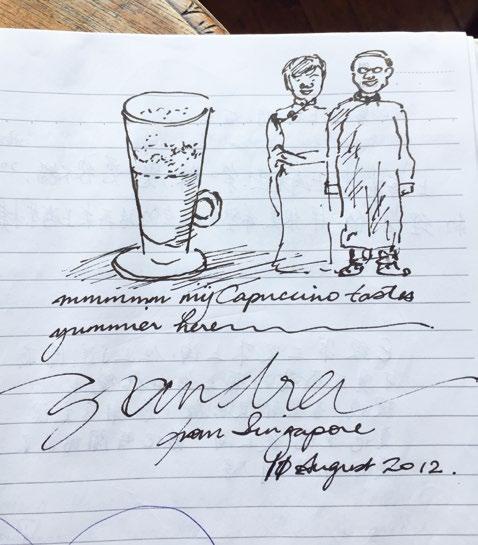 mmmmmm my Capuccino tastes
yummier here
from Singapore
August 2012.